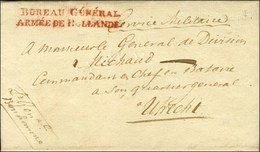 BUREAU GÉNÉRAL
ARMÉE DE HOLLANDE
Service Militaire
A Monsieur le General de Division
Michaud
Commandant en Chef en Batavie
a son quartier general
a Utrecht